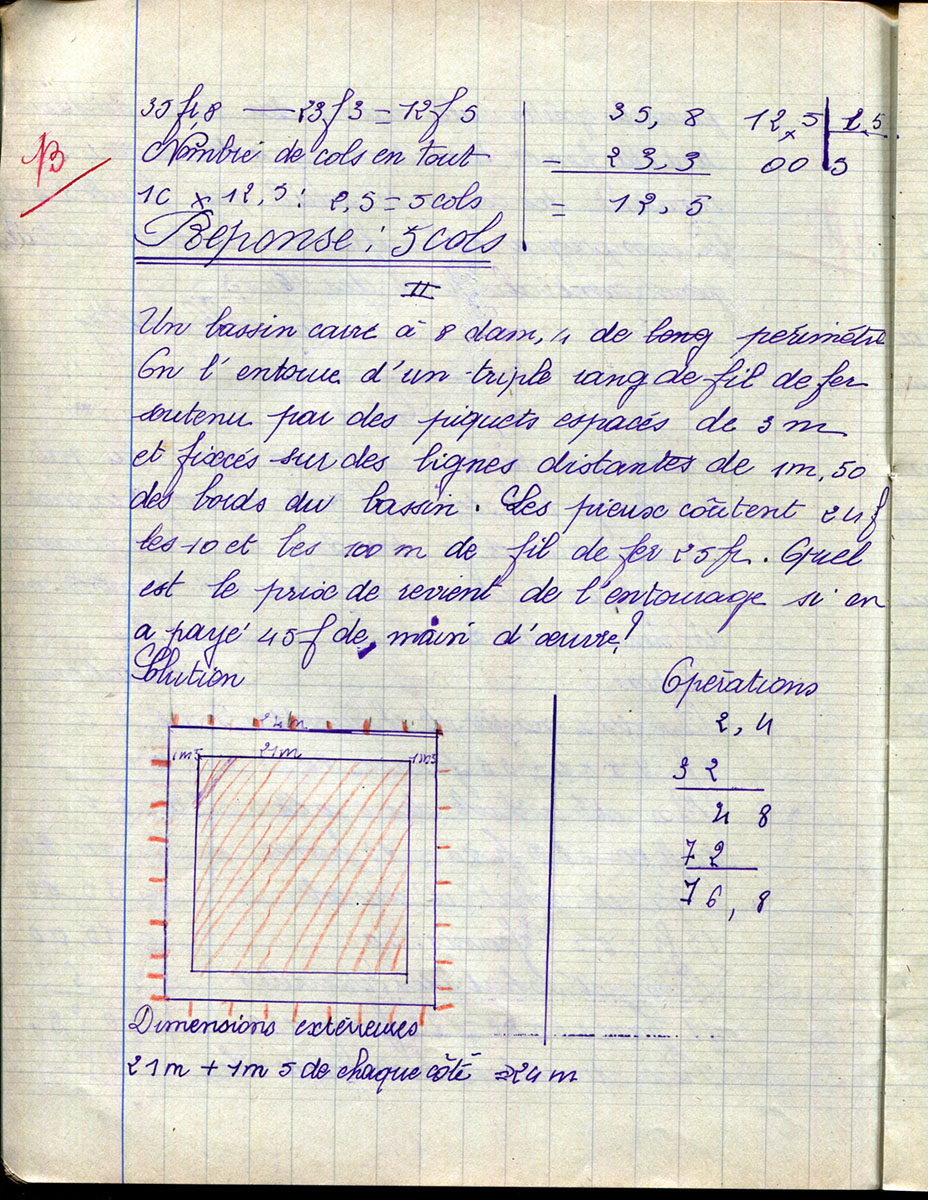 B
35f,8 — 23f3 = 12f5
Nombre de cols en tout
1c x 12,5 : 2,5 = 5 cols
Réponse : 5 cols
35,8
- 23,3
= 12,5
12,5 | 2,5
00 5
II
Un bassin carré à 8 dam,4 de long périmètre
On l'entoure d'un triple rang de fil de fer
soutenu par des piquets espacés de 3 m
et fixés sur des lignes distantes de 1m,50
des bords du bassin. Les pieux coûtent 24f
les 10 et les 100 m de fil de fer 25 fr. Quel
est le prix de revient de l'entourage si on
a payé 45f de main d'œuvre!
Solution
Opérations
24m
1m5 21m 1m5
2,4
32
4 8
72
76,8
Dimensions extérieures
21m + 1m5 de chaque côté = 24 m